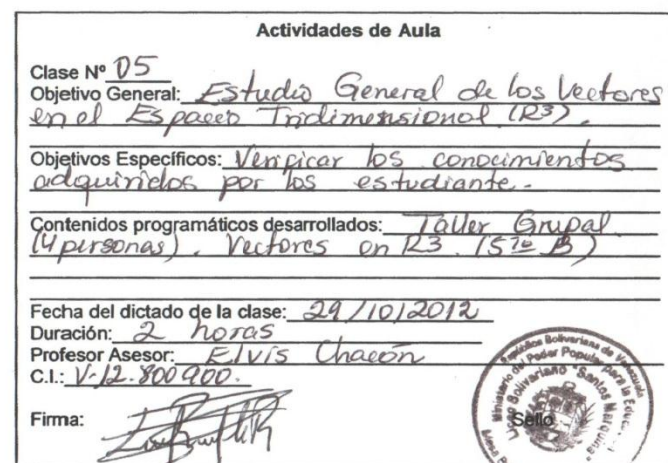 Actividades de Aula
Clase Nº 05
Objetivo General: Estudio General de los Vectores
en el Espacio Tridimensional (R3).
Objetivos Específicos: Verificar los conocimientos
adquiridos por los estudiante.
Contenidos programáticos desarrollados: Taller Grupal
(4 personas). Vectores en R3. (5to B)
Fecha del dictado de la clase: 29/10/2012
Duración: 2 horas
Profesor Asesor: Elvis Chacón
C.I.: V-12.800900.
Firma:
Sello
República Bolivariana de Venezuela
Ministerio del Poder Popular para la Educa
Liceo Bolivariano "Santos Marquina"